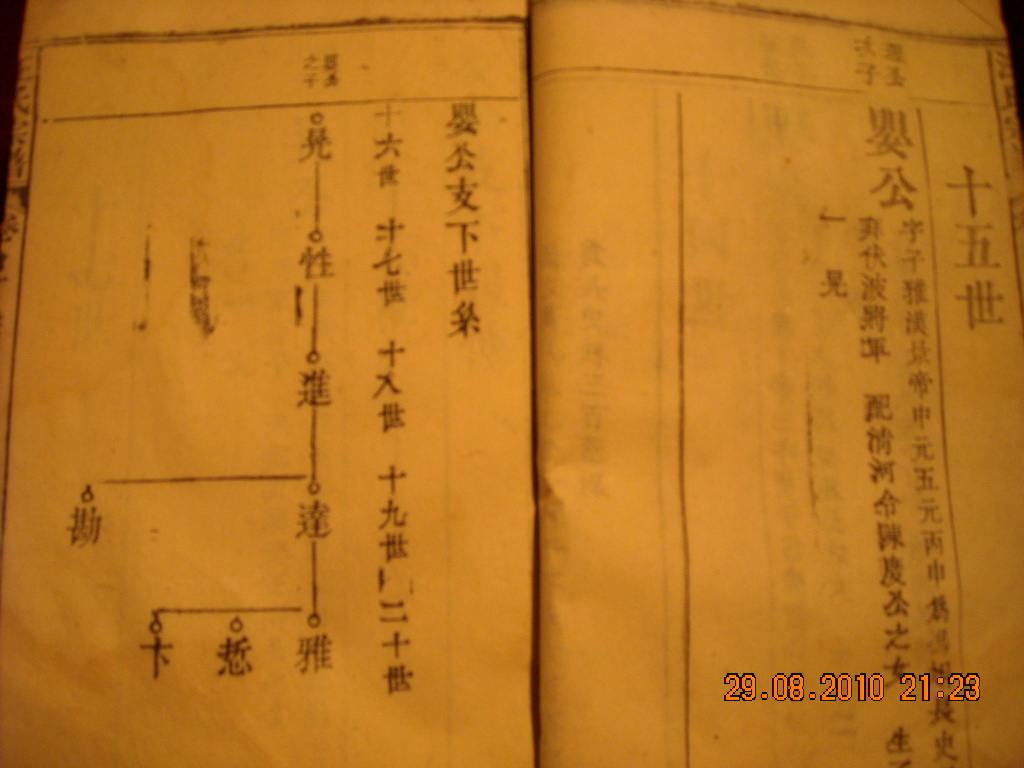 十五世
嬰公
字子雅漢景帝中元五元丙申為馮翊長史
拜伏波將軍 配清河令陳慶公之女 生
一 晃
嬰公支下世系
十六世 十七世 十八世 十九世 二十世
之子
晃
性
進
達
勘
雅
悊
卞
29.08.2010 21:23